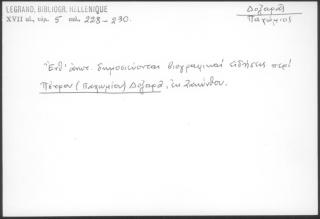 LEGRAND, BIBLIOGR. HELLÉNIQUE
XVII αἰ, τόμ. 5 σελ. 228-230.
Δοξαρᾶς
Παχώμιος
Ἔνθ' ἀνωτ. δημοσιεύονται βιογραφικαί εἰδήσεις περί
Πέτρου (Παχωμίου) Δοξαρᾶ, ἐκ Ζακύνθου.